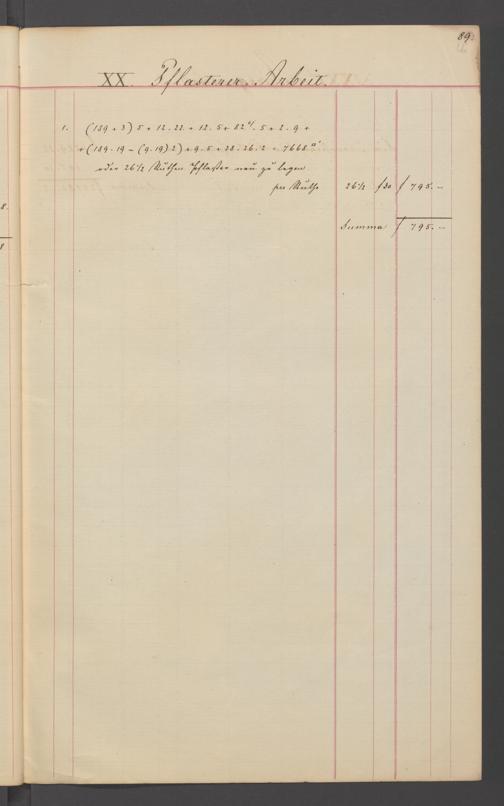 89.
XX. Pflasterer-Arbeit.
1. (189 + 3) 5 + 12 . 22 + 12 . 5 + 82 . 5 + 2 . 9 +
+ (189 . 19 – (9 . 19) 2) + 9 . 5 + 28 . 26 . 2 = 7668 □'
oder 26½ Ruthen Pflaster neu zu legen
per Ruthe 26½ f 30 f 795. –
Summa f 795. –
8.
8